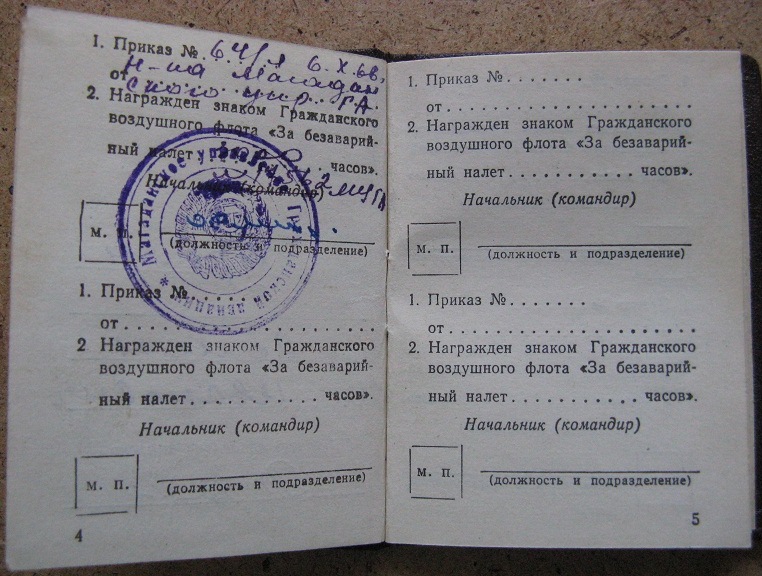 1. Приказ № 64/л 6.X.68.
от н-ка Магадан
ского упр. ГА
2. Награжден знаком Гражданского
воздушного флота «За безаварий-
ный налет часов».
Начальник (командир)
Магаданское управление Гражданской авиации *
М. П.
(должность и подразделение)
1. Приказ № . . . . . . .
от . . . . . . . . . . . . . . . . . . . .
2 Награжден знаком Гражданского
воздушного флота «За безаварий-
ный налет . . . . . . . . . . . часов».
Начальник (командир)
М. П.
(должность и подразделение)
4
1. Приказ № . . . . . . .
от . . . . . . . . . . . . . . . . . . . .
2. Награжден знаком Гражданского
воздушного флота «За безаварий-
ный налет . . . . . . . . . . . часов».
Начальник (командир)
М. П.
(должность и подразделение)
1. Приказ № . . . . . . .
от . . . . . . . . . . . . . . . . . . . .
2. Награжден знаком Гражданского
воздушного флота «За безаварий-
ный налет . . . . . . . . . . . часов».
Начальник (командир)
М. П.
(должность и подразделение)
5